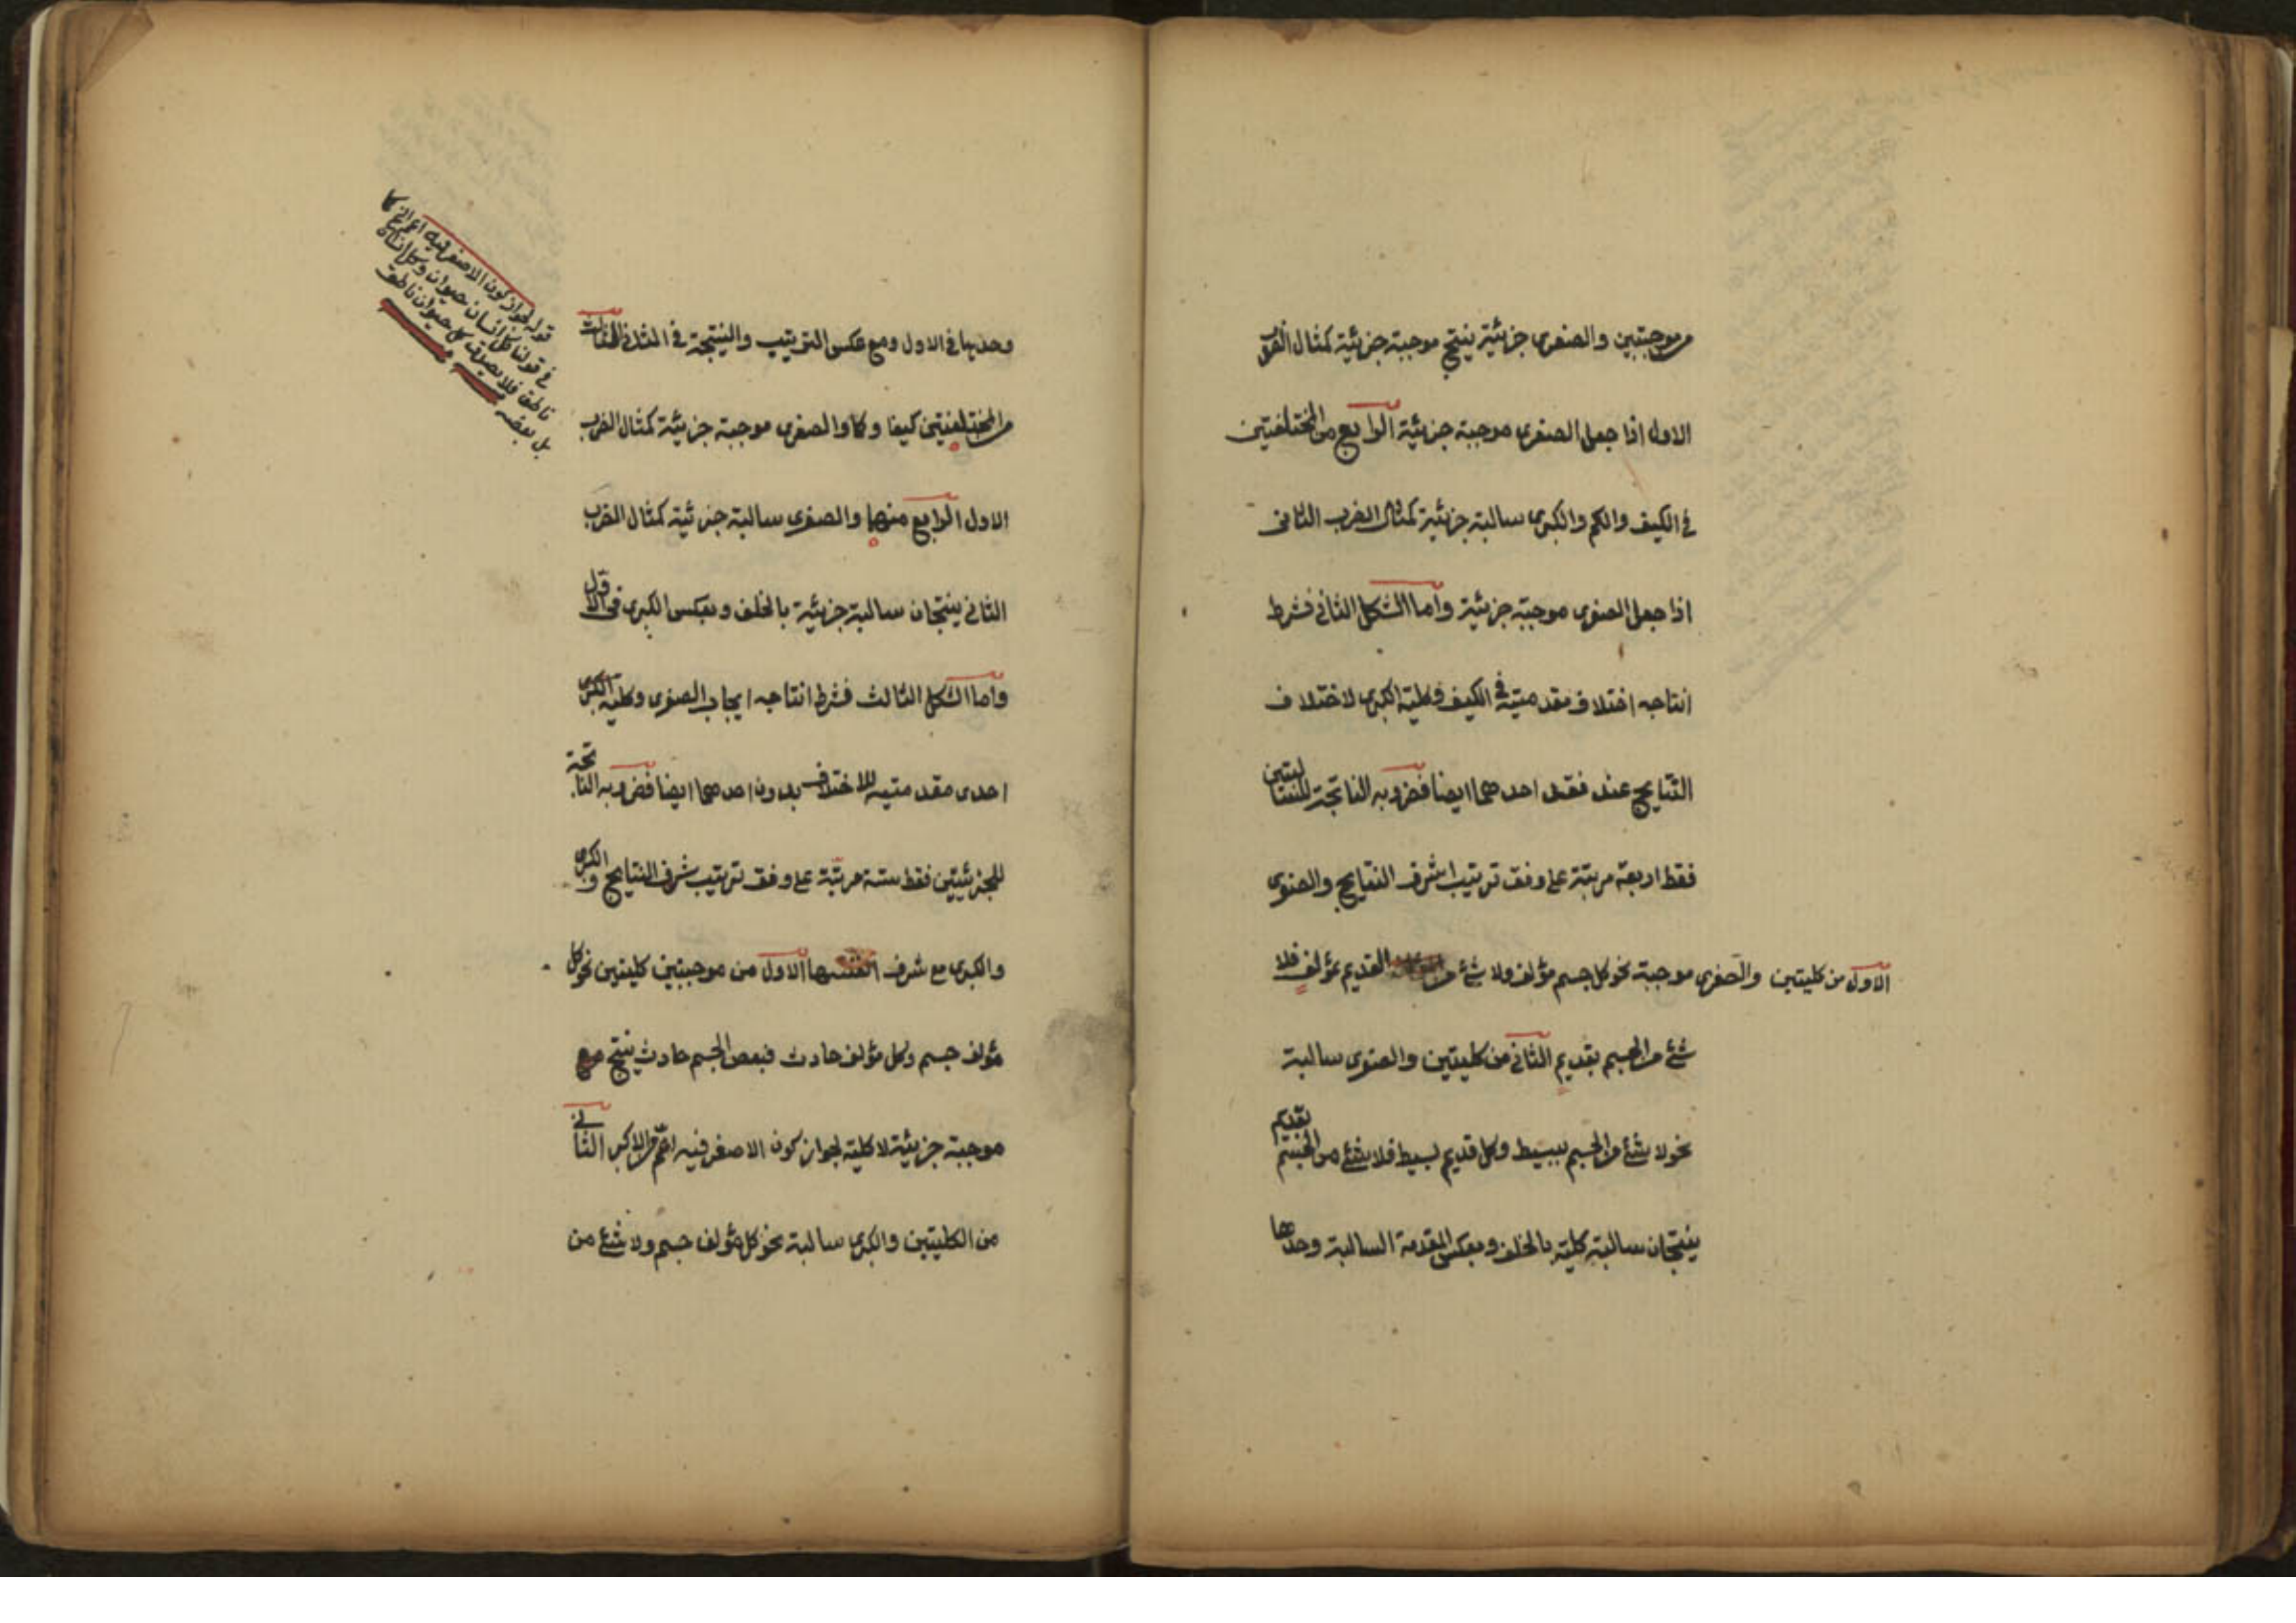 من موجبتين والصغرى جزئية ينتج موجبة جزئية كمثال الضرب
الاول اذا جعل الصغرى موجبة جزئية الرابع من المختلفتين
في الكيف والكم والكبرى سالبة جزئية كمثال الضرب الثاني
اذا جعل الصغرى موجبة جزئية واما الشكل الثاني فشرط
انتاجه اختلاف مقدمتيه في الكيف وكلية الكبرى لاختلاف
النتايج عند فقد احدهما ايضا فضروبه الناتجة للسالبتين
فقط اربعة مرتبة على وفق ترتيب اشرف النتايج والصغرى
الاول من كليتين والصغرى موجبة نحو كل جسم مؤلف ولا شئ من القديم بمؤلف فلا
شئ من الجسم بقديم الثاني من كليتين والصغرى سالبة
نحو لا شئ من الجسم ببسيط وكل قديم بسيط فلا شئ من الجسم بقديم
ينتجان سالبة كلية بالخلف وبعكس المقدمة السالبة وحدها
وحدها في الاول ومع عكس الترتيب والنتيجة في الثاني الثالث
من المختلفتين كيفا وكما والصغرى موجبة جزئية كمثال الضرب
الاول الرابع منهما والصغرى سالبة جزئية كمثال الضرب
الثاني ينتجان سالبة جزئية بالخلف وبعكس الكبرى في الاول
واما الشكل الثالث فشرط انتاجه ايجاب الصغرى وكلية الكبرى
احدى مقدمتيه للاختلاف بدون احدهما ايضا فضروبه الناتجة
للجزئيتين فقط ستة مرتبة على وفق ترتيب شرف النتايج والكبرى
والكبرى مع شرف انفسها الاول من موجبتين كليتين نحو كل
مؤلف جسم وكل مؤلف حادث فبعض الجسم حادث ينتج مع
موجبة جزئية لا كلية لجواز كون الاصغر فيه اعم من الاكبر الثاني
من الكليتين والكبرى سالبة نحو كل مؤلف جسم ولا شئ من
قوله لجواز كون الاصغر فيه اعم الخ كما
في قولنا كل انسان حيوان وكل انسان
ناطق فلا يصدق كل حيوان ناطق
بل بعضه